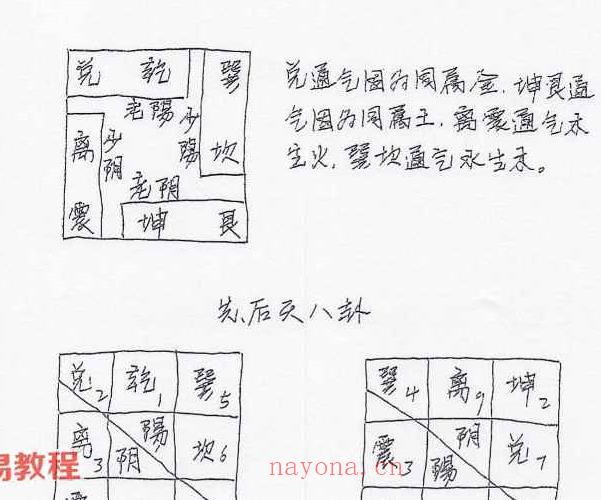 兑 乾 巽
老陽
离 少阴 少陽 坎
老阴
震 坤 艮
兑通气因为同属金,坤艮通
气因为同属土,离震通气木
生火,巽坎通气水生木。
先、后天八卦
兑2 乾1 巽5
离3 阴 陽 坎6
巽4 离9 坤2
震3 阴 陽 兑7
易教程
nayona.cn